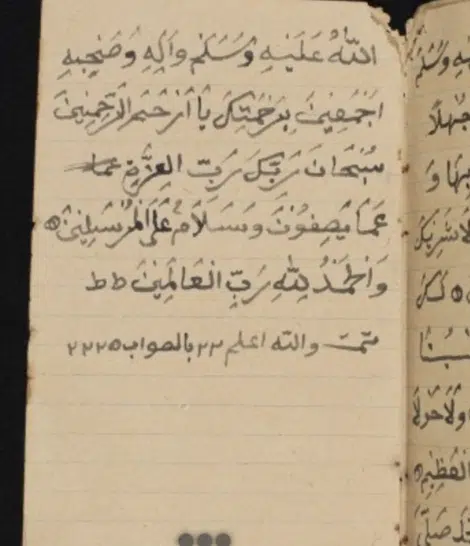 اللّٰهُ عَلَيْهِ وَسَلَّمَ وَاٰلِهِ وَصَحْبِهِ
اَجْمَعِيْنَ بِرَحْمَتِكَ يَا اَرْحَمَ الرَّحِمِيْنَ
سُبْحَانَ رَبِّكَ رَبِّ الْعِزَّةِ عما
عَمَّا يَصِفُوْنَ وَسَلَامٌ عَلَى الْمُرْسَلِيْنَ ۞
وَالْحَمْدُ لِلّٰهِ رَبِّ الْعَالَمِيْنَ ط ط
تمت والله اعلم ٢٢ بالصواب ٢٢٢٥
يْهِ وَسَلَّمَ
وَلَا حَوْلَ
الْعَظِيْمِ ۞